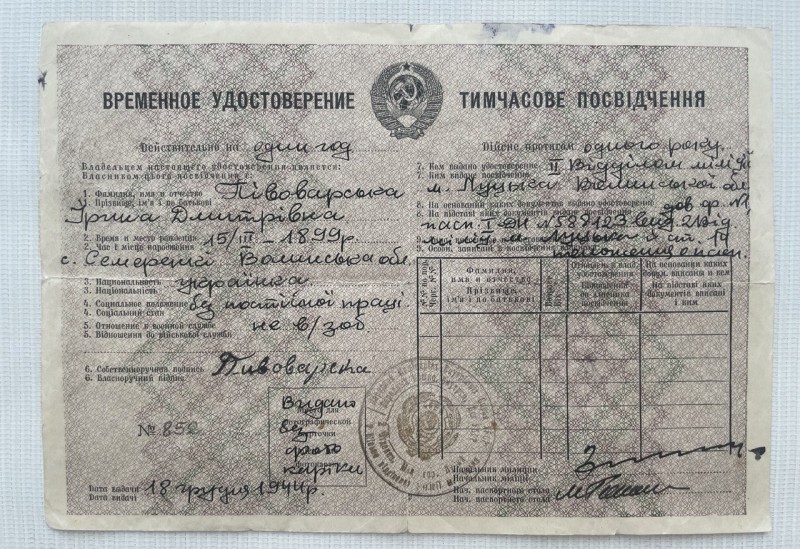 ВРЕМЕННОЕ УДОСТОВЕРЕНИЕ
ТИМЧАСОВЕ ПОСВІДЧЕННЯ
Действительно на один год
Владельцем настоящего удостоверения является:
Власником цього посвідчення є:
1. Фамилия, имя и отчество
1. Прізвище, ім'я і по батькові
Півоварська
Ірина Дмитрівна
2. Время и место рождения
2. Час і місце народження
15/III – 1899 р.
с. Семеренки Волинська обл.
3. Национальность
3. Національність
українка
4. Социальное положение
4. Соціальний стан
без постійної праці
5. Отношение к военной службе
5. Відношення до військової служби
не в/зоб.
6. Собственноручная подпись
6. Власноручний підпис
Пивоварска
№ 852
Место для
фотографической
карточки
Видано
без
фото
картки
Дата выдачи
Дата видачі
18 грудня 1944 р.
Дійсне протягом одного року
7. Кем выдано удостоверение
7. Ким видано посвідчення
II Відділом міліції
м. Луцька Волинської обл.
8. На основании каких документов выдано удостоверение
8. На підставі яких документів видано посвідчення
дов. ф. №1
пасп. I-ДН № 588123 від
м. Луцька і ст. 14
положення о пасп.
№№ по пор.
Фамилия,
имя и отчество
Прізвище,
ім'я і по батькові
На основании каких
докум. вписан и кем
На підставі яких
документів вписані
і ким
Начальник милиции
Начальник міліції
Нач. паспортного стола
Нач. паспортного столу